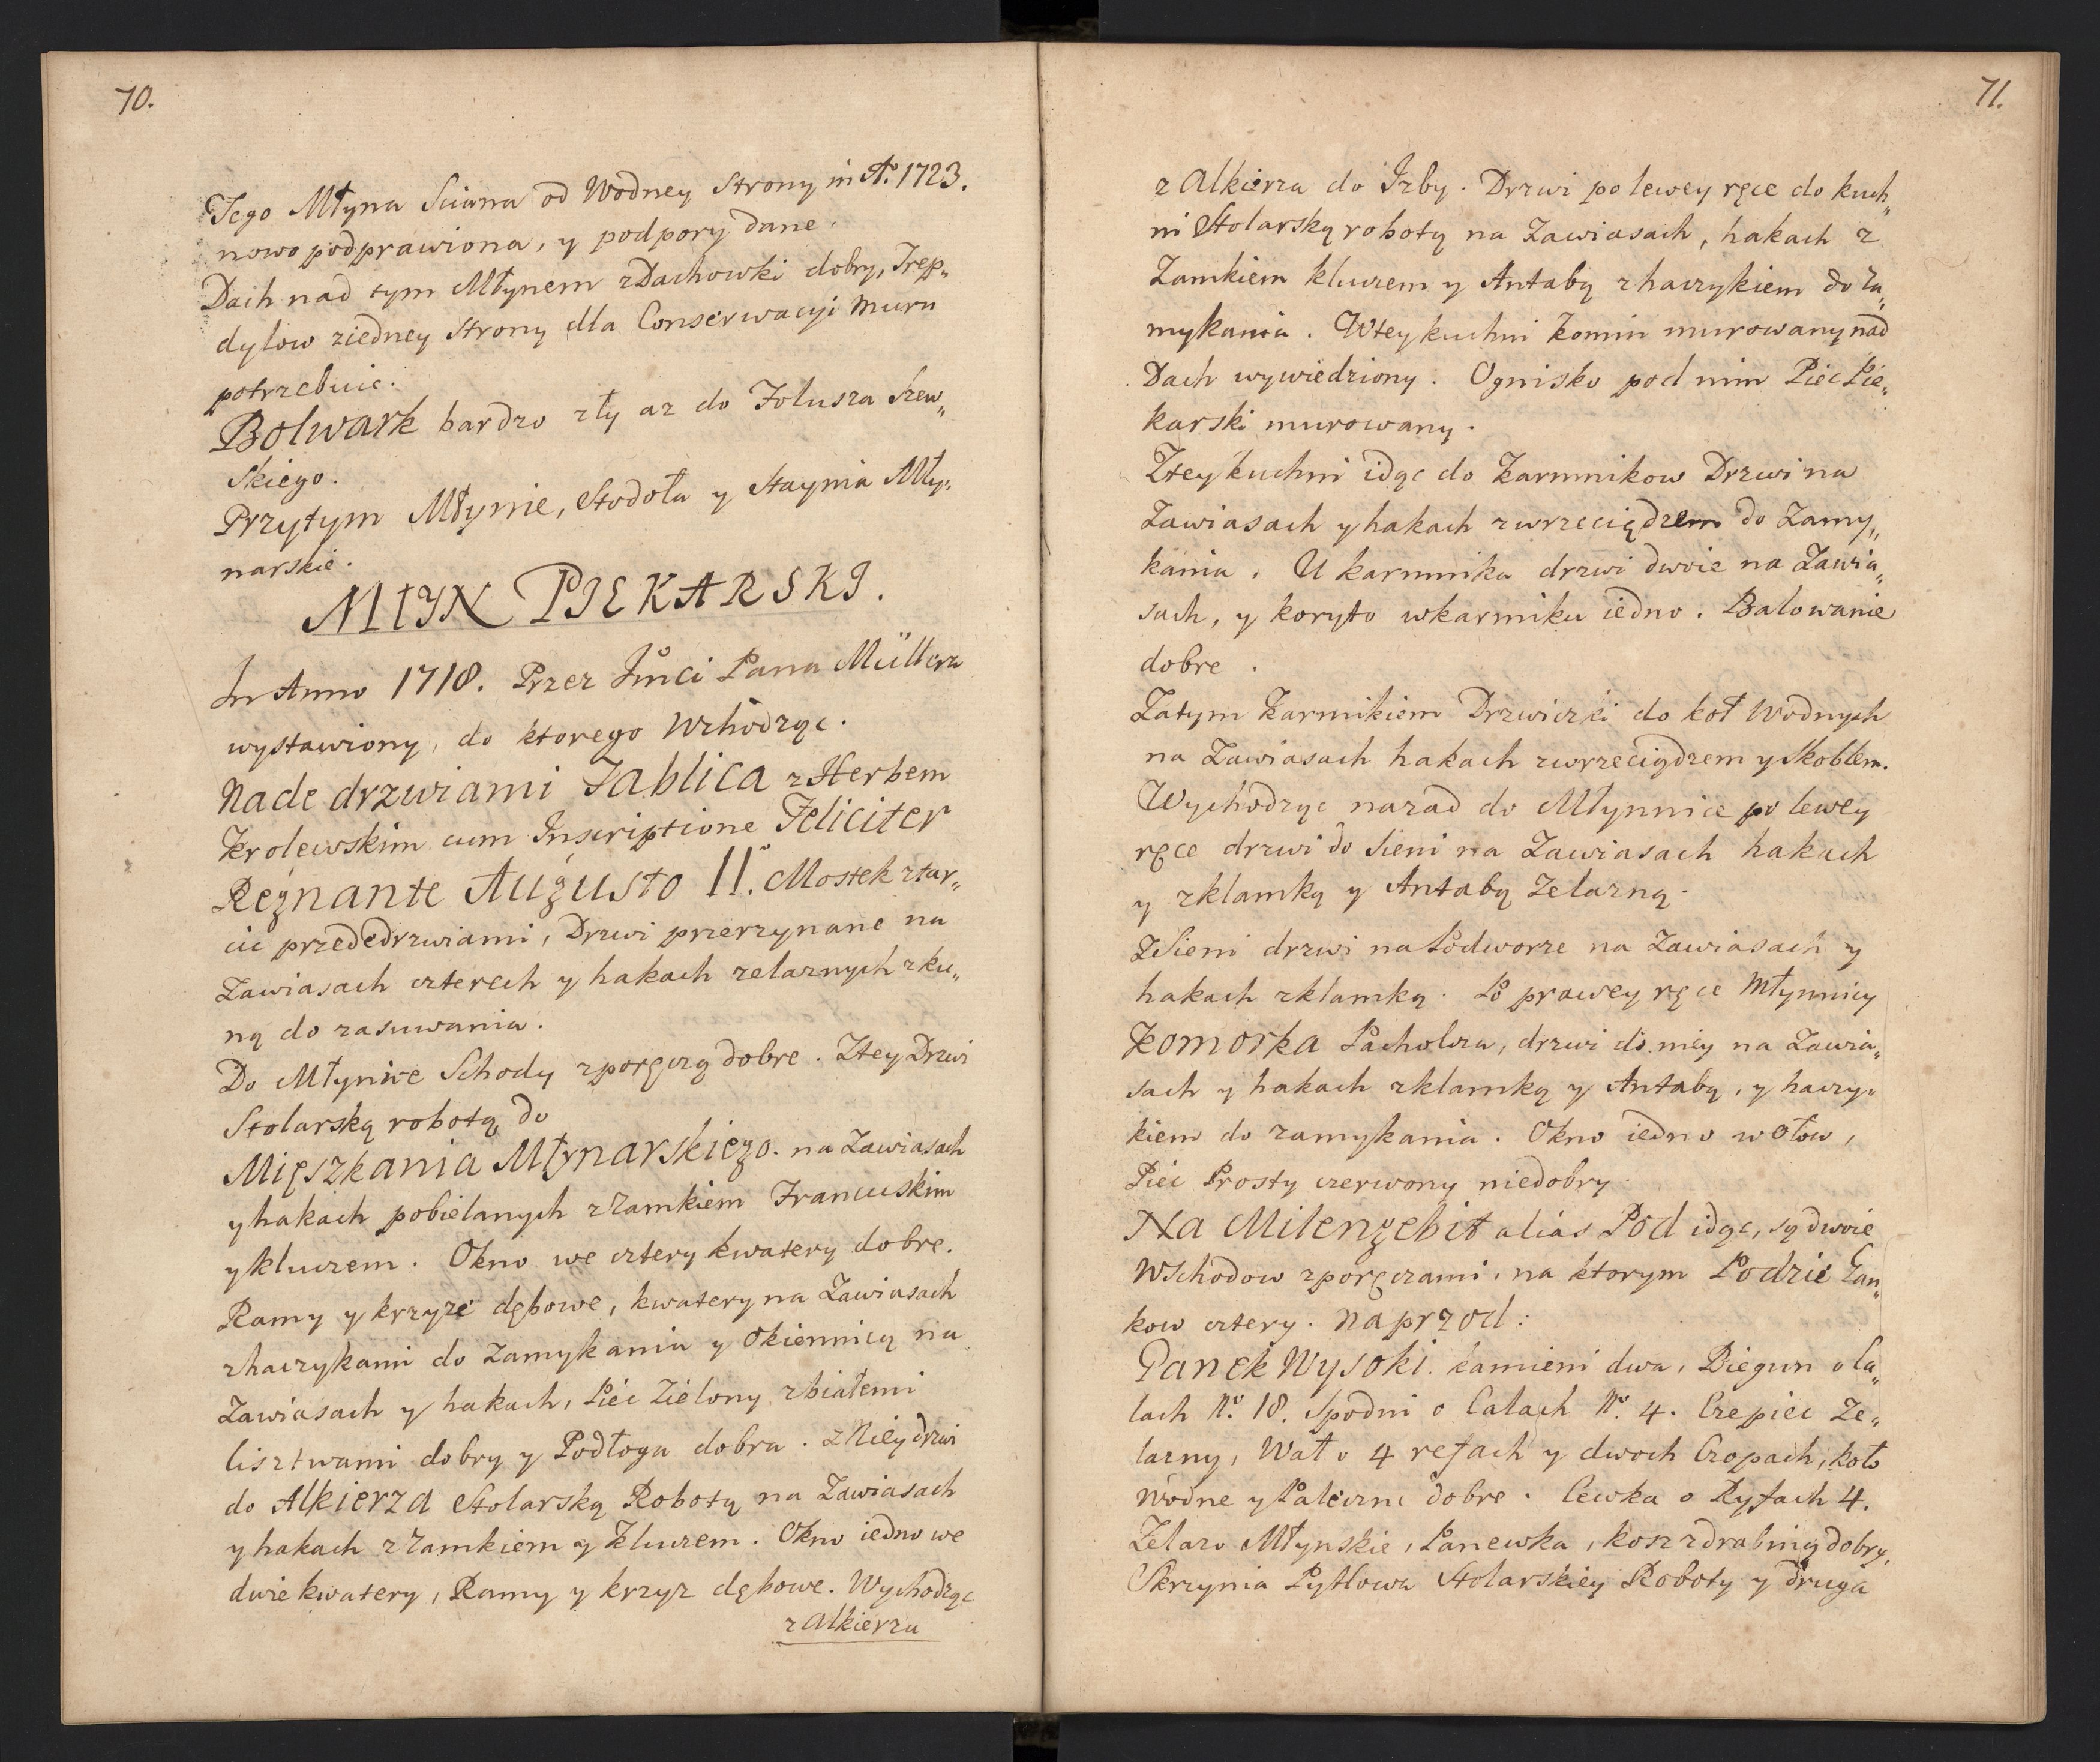 70.
Tego Młyna Sciana od Wodney Strony in Aº. 1723.
nowo podprawiona, y podpory dane.
Dach nad tym Młynem z Dachowki dobry, Trep„
dylow ziedney Strony dla Conserwacyi Muru
potrzebuie.
Bolwark bardzo zły az do Folusza Szew„
skiego.
Przytym Młynie, Stodoła y Staynia Mły„
narskie.
MŁYN PIEKARSKI.
In Anno 1718. Przez Jmci Pana Müllera
wystawiony, do ktorego Wchodząc.
Nade drzwiami Tablica z Herbem
Krolewskim cum Inscriptione Feliciter
Regnante Augusto II. Mostek z tar„
cic przededrzwiami, Drzwi przerzynane na
Zawiasach czterech y hakach zelaznych z ku„
ną do zasuwania.
Do Młynice Schody z poręczą dobre. Ztey Drzwi
Stolarską robotą do
Mięszkania Młynarskiego. na Zawiasach
y hakach pobielanych z Zamkiem Francuskim
y kluczem. Okno we cztery kwatery dobre.
Ramy y krzyże dębowe, kwatery na Zawiasach
z haczykami do Zamykania y Okiennicą na
Zawiasach y hakach, Piec Zielony z białemi
lisztwami dobry y Podłoga dobra. z Niey drzwi
do Alkierza Stolarską Robotą na Zawiasach
y hakach z Zamkiem y Kluczem. Okno iedno we
dwie kwatery, Ramy y krzyz dębowe. Wychodząc
z Alkierza
71.
z Alkierza do Izby. Drzwi po lewey ręce do kuch„
ni Stolarską robotą na Zawiasach, hakach z
Zamkiem kluczem y Antabą z haczykiem do Za„
mykania. Wtey kuchni Komin murowany nad
Dach wywiedziony. Ognisko pod nim Piec Pie„
karski murowany.
Ztey kuchni idąc do Karmnikow Drzwi na
Zawiasach y hakach z wrzeciądzem do Zamy„
kania. U karmnika drzwi dwoie na Zawia„
sach, y koryto wkarmiku iedno. Balowanie
dobre.
Zatym Karmikiem Drzwiczki do koł Wodnych
na Zawiasach hakach z wrzeciądzem y Skoblem.
Wychodząc nazad do Młynnice po lewey
ręce drzwi do Sieni na Zawiasach hakach
y z klamką y Antabą Zelazną.
Z Sieni drzwi na Podworze na Zawiasach y
hakach z klamką. Po prawey ręce Młynnicy
Komorka Pacholcza, drzwi do niey na Zawia„
sach y hakach z klamką y Antabą, y haczy„
kiem do zamykania. Okno iedno w ołow,
Piec Prosty czerwony niedobry.
Na Milengebit alias Pod idąc, są dwoie
Wschodow z poręczami, na ktorym Podzie Gan„
kow cztery. Naprzod:
Ganek Wysoki. kamieni dwa, Biegun o Ca„
lach Nº. 18. Spodni o Calach Nº. 4. Czepiec Ze„
lazny, Wał o 4 refach y dwoch Czopach, koło
Wodne y Paleczne dobre. Cewka o Ryfach 4.
Zelazo Młynskie, Panewka, kosz z drabiną dobry,
Skrzynia Pytlowa Stolarskiey Roboty y druga